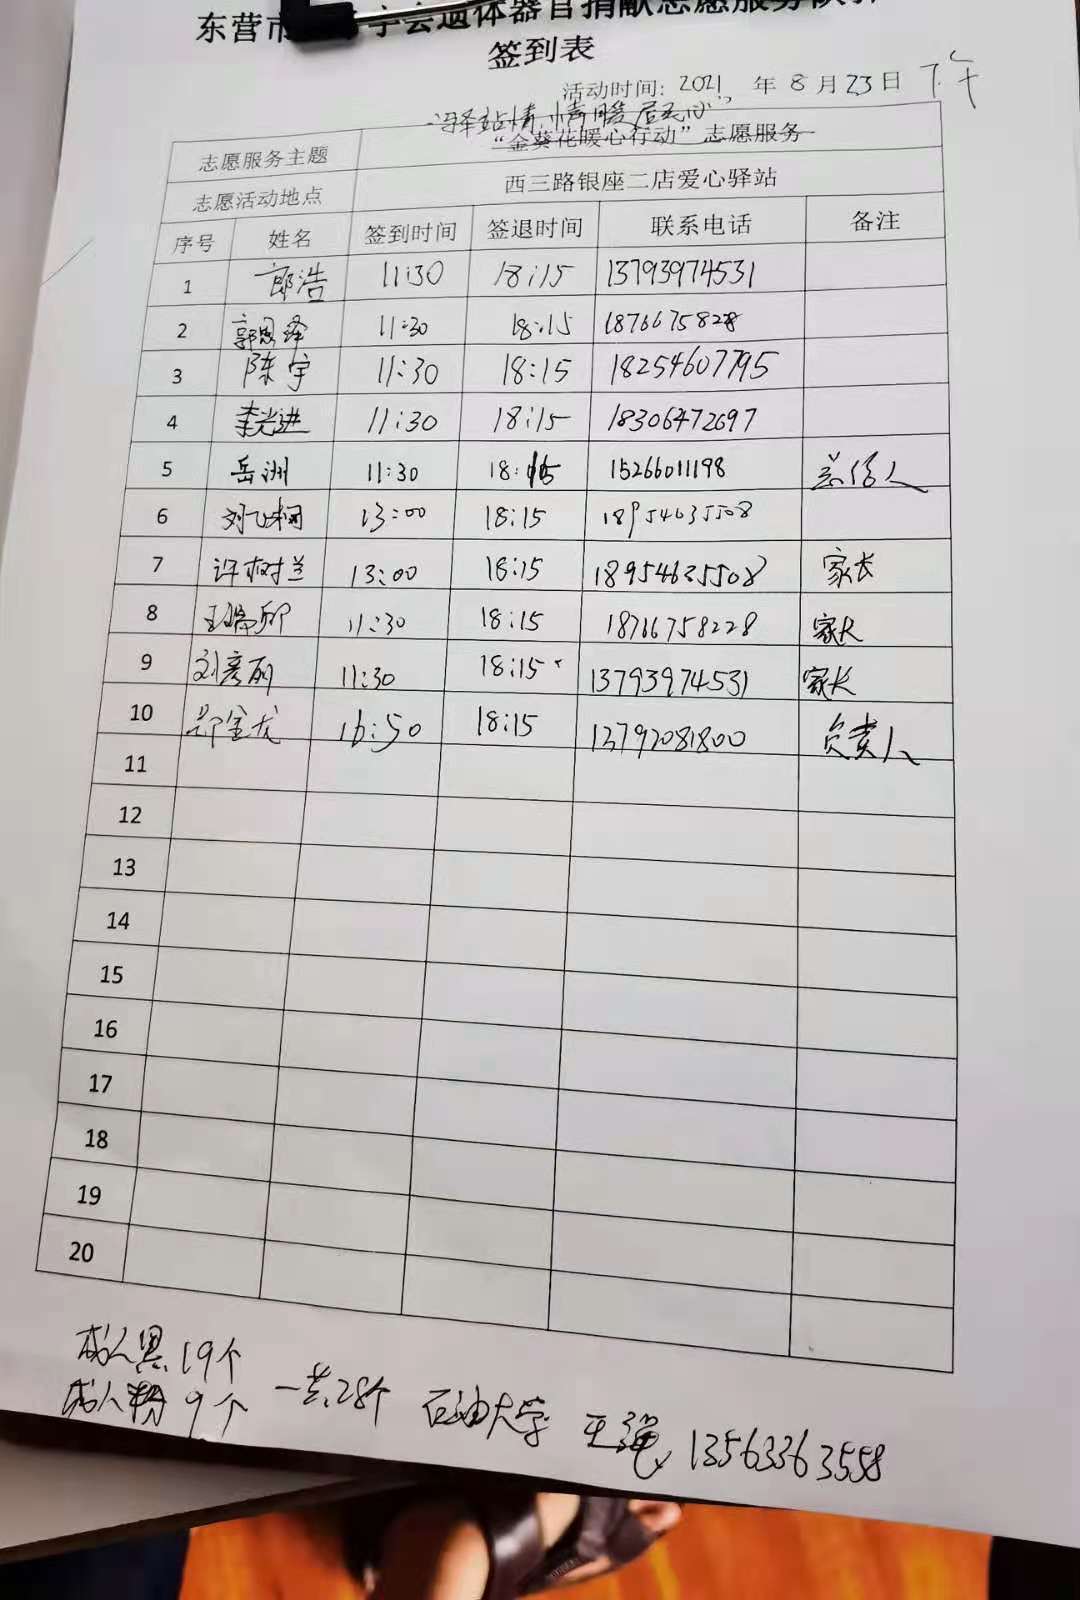 东营市 字会遗体器官捐献志愿服务队
签到表
活动时间: 2021 年 8 月 23 日 下午
“浮驿站情, 情暖居民心”
志愿服务主题 “金葵花暖心行动”志愿服务
志愿活动地点 西三路银座二店爱心驿站
序号 姓名 签到时间 签退时间 联系电话 备注
1 郎浩 11:30 18:15 13793974531
2 郭恩泽 11:30 18:15 1876675828
3 陈宇 11:30 18:15 18254607795
4 李光进 11:30 18:15 18306472697
5 岳洲 11:30 18:15 15266011198 总信人
6 刘 13:00 18:15 18954635508
7 许树兰 13:00 18:15 18954635508 家长
8 王瑞 11:30 18:15 18766758228 家长
9 刘彦丽 11:30 18:15 13793974531 家长
10 金龙 16:50 18:15 13792081800 负责人
11
12
13
14
15
16
17
18
19
20
成人黑 19个
成人粉 9个 一共28个 石油大学 王强 13563363558